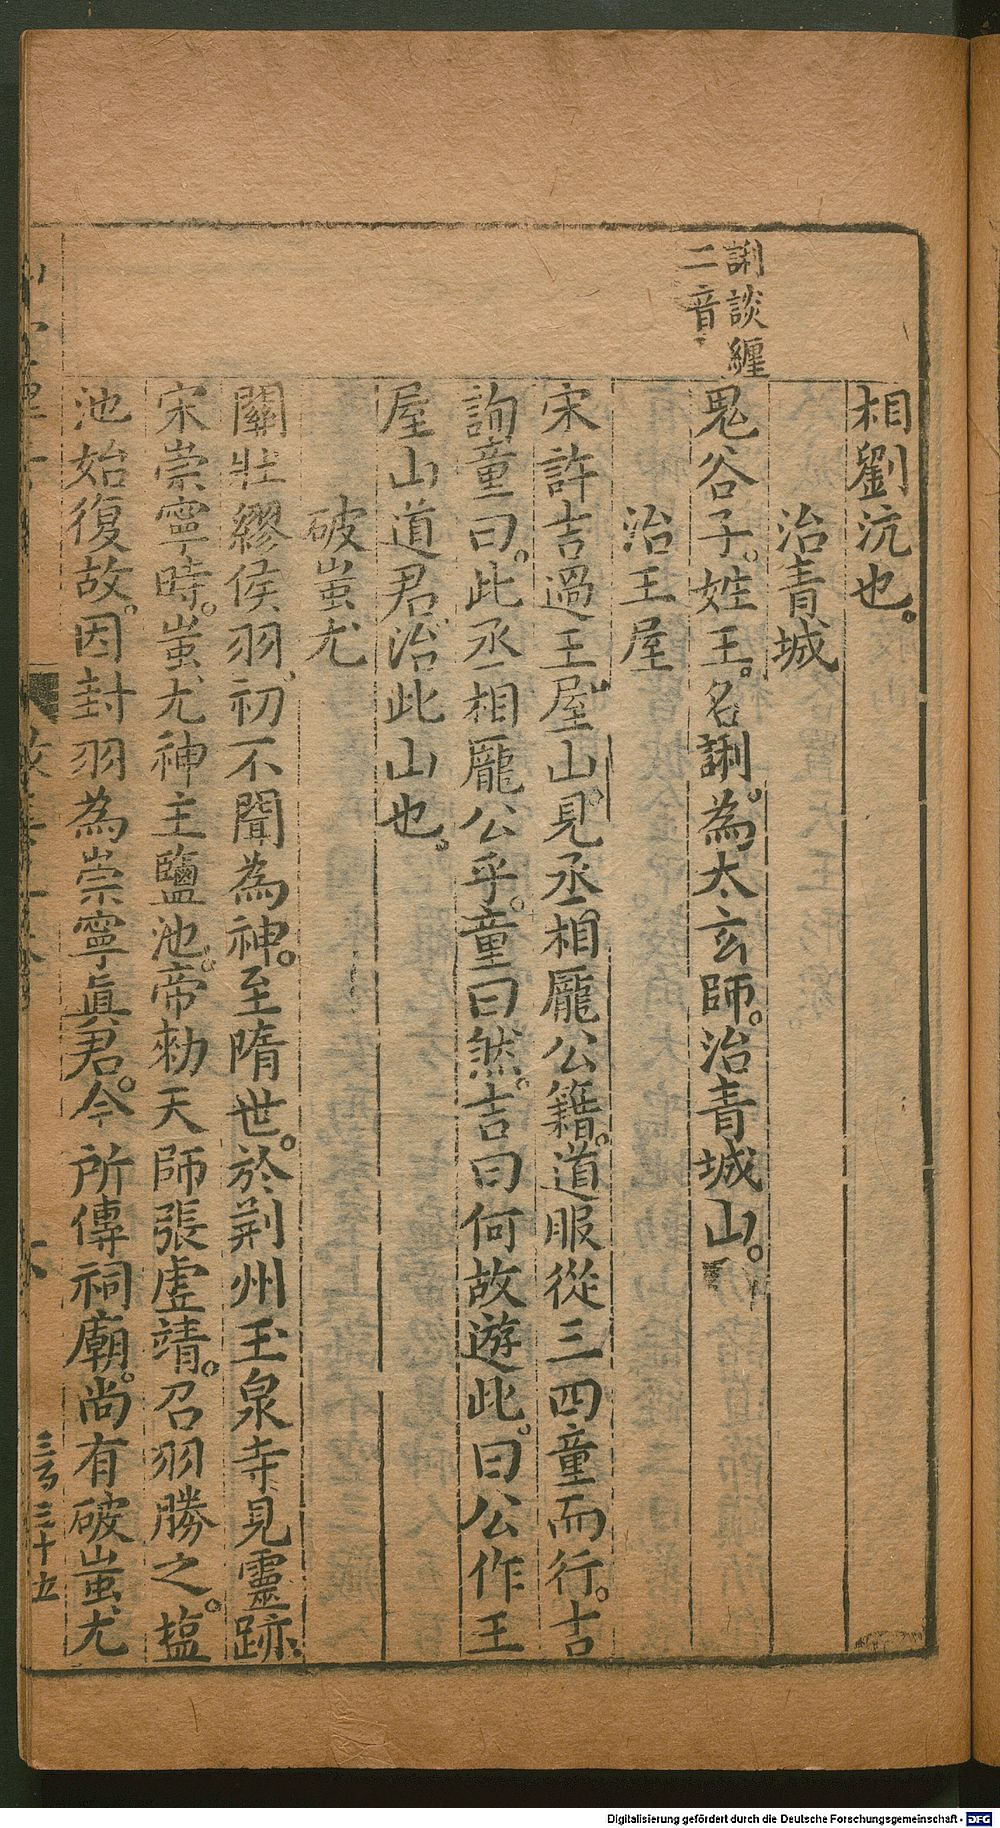 誗談纏
二音
相劉沆也。
治青城
鬼谷子。姓王。名誗。為太玄師。治青城山。
治王屋
宋許吉過王屋山。見丞相龐公籍。道服從三四童而行。吉
詢童曰。此丞相龐公乎。童曰然。吉曰何故遊此。曰公作王
屋山道君治此山也。
破蚩尤
關壯繆侯羽、初不聞為神。至隋世。於荊州玉泉寺見靈跡、
宋崇寧時。蚩尤神主鹽池。帝勑天師張虛靖。召羽勝之。塩
池始復故。因封羽為崇寧眞君。今所傳祠廟。尚有破蚩尤
六
三百三十五
Digitalisierung gefördert durch die Deutsche Forschungsgemeinschaft - DFG